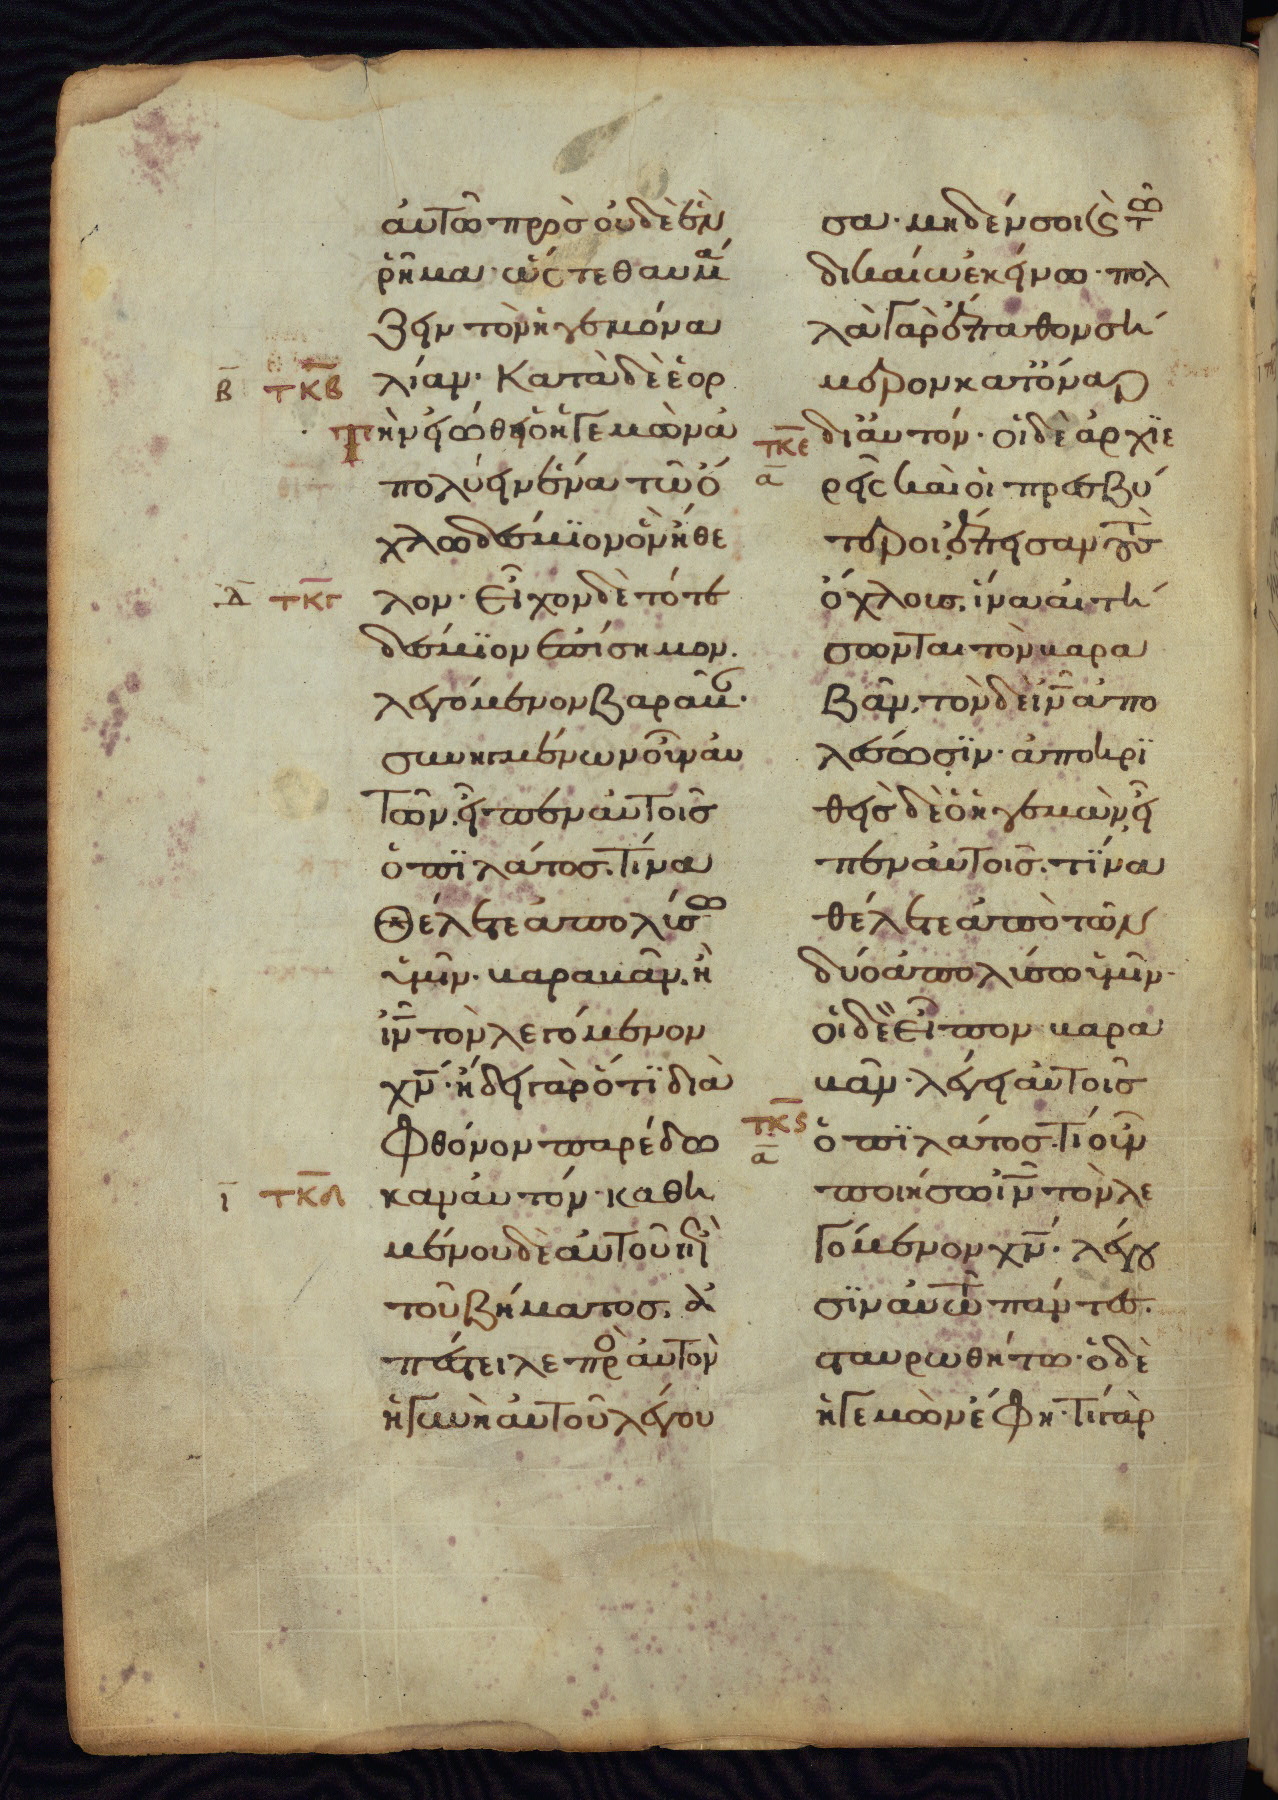 αὐτῶ πρὸσ οὐδὲ ἓν
ῥῆμα· ὥστε θαυμά
ζειν τὸν ἡγεμόνα
β̄ τκ̄β λίαν· Κατὰ δὲ ἑορ
τὴν εἰώθει ὁ ἡγεμὼν ἀ
πολύειν ἕνα τῶ ὄ
χλω δέσμϊον ὃν ἤθε
δ̄ τκ̄γ λον· Εἶχον δὲ τότε
δέσμϊον ἐπίσημον.
λεγόμενον βαραββ·
συνηγμένων οὖν αυ
τῶν. εἶπεν αὐτοῖσ
ὁ πϊλάτοσ. Τίνα
Θέλετε ἀπολύσω
ὑμῖν· βαραββᾶν. ἢ
ἰν̄ τὸν λεγόμενον
χν̄· ἤδει γὰρ ὅτϊ διὰ
Φθόνον παρέδω
ῑ τκ̄δ καν αὐτόν· καθη
μένου δὲ αὐτοῦ ἐπὶ
τοῦ βήματοσ. ἀ
πέστειλε πρὸ αὐτὸν
ἡ γυνὴ αὐτοῦ λέγου
σα· μηδὲν σοι ϗ τῶ
δικαίω ἐκείνω· πολ
λὰ γὰρ ἔπαθον σή
μερον κατ ὄναρ
τκ̄ε ᾱ δι αὐτόν· οἱ δὲ ἀρχϊε
ρεῖς καὶ οἱ πρεσβύ
τεροι ἔπεισαν τοὺσ
ὄχλουσ. ἵνα αἰτή
σωνται τὸν βαρα
βᾶν. τὸν δὲ ἰν̄ ἀπο
λέσωσϊν· ἀποκρϊ
θεὶσ δὲ ὁ ἡγεμὼν εἶ
πεν αὐτοῖσ. τϊνα
θέλετε ἀπὸ τῶν
δύο ἀπολύσω ὑμῖν·
οἱ δὲ εἶπον βαρα
βᾶν· λέγει αὐτοῖσ
τκ̄ϛ ᾱ ὁ πϊλάτοσ. Τί οὖν
ποιήσω ἰν̄ τὸν λε
γόμενον χν̄· λέγου
σϊν αὐτῶ πάντεσ.
σταυρωθήτω· ὁ δὲ
ἡγεμὼν ἔφη· Τί γὰρ